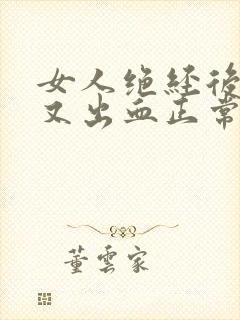 女人绝经後
又出血正常
董云家